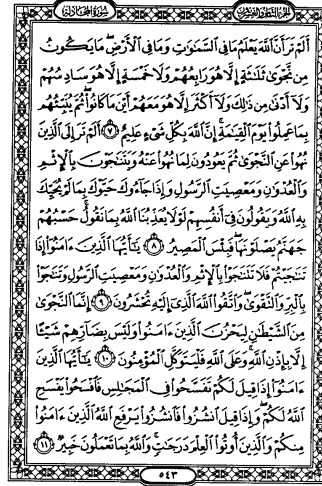 الجزء الثامن والعشرون
سورة المجادلة
أَلَمْ تَرَ أَنَّ ٱللَّهَ يَعْلَمُ مَا فِى ٱلسَّمَٰوَٰتِ وَمَا فِى ٱلْأَرْضِ مَا يَكُونُ
مِن نَّجْوَىٰ ثَلَٰثَةٍ إِلَّا هُوَ رَابِعُهُمْ وَلَا خَمْسَةٍ إِلَّا هُوَ سَادِسُهُمْ
وَلَآ أَدْنَىٰ مِن ذَٰلِكَ وَلَآ أَكْثَرَ إِلَّا هُوَ مَعَهُمْ أَيْنَ مَا كَانُوا۟ ثُمَّ يُنَبِّئُهُم
بِمَا عَمِلُوا۟ يَوْمَ ٱلْقِيَٰمَةِ إِنَّ ٱللَّهَ بِكُلِّ شَىْءٍ عَلِيمٌ ٧ أَلَمْ تَرَ إِلَى ٱلَّذِينَ
نُهُوا۟ عَنِ ٱلنَّجْوَىٰ ثُمَّ يَعُودُونَ لِمَا نُهُوا۟ عَنْهُ وَيَتَنَٰجَوْنَ بِٱلْإِثْمِ
وَٱلْعُدْوَٰنِ وَمَعْصِيَتِ ٱلرَّسُولِ وَإِذَا جَآءُوكَ حَيَّوْكَ بِمَا لَمْ يُحَيِّكَ
بِهِ ٱللَّهُ وَيَقُولُونَ فِىٓ أَنفُسِهِمْ لَوْلَا يُعَذِّبُنَا ٱللَّهُ بِمَا نَقُولُ حَسْبُهُمْ
جَهَنَّمُ يَصْلَوْنَهَا فَبِئْسَ ٱلْمَصِيرُ ٨ يَٰٓأَيُّهَا ٱلَّذِينَ ءَامَنُوٓا۟ إِذَا
تَنَٰجَيْتُمْ فَلَا تَتَنَٰجَوْا۟ بِٱلْإِثْمِ وَٱلْعُدْوَٰنِ وَمَعْصِيَتِ ٱلرَّسُولِ وَتَنَٰجَوْا۟
بِٱلْبِرِّ وَٱلتَّقْوَىٰ وَٱتَّقُوا۟ ٱللَّهَ ٱلَّذِىٓ إِلَيْهِ تُحْشَرُونَ ٩ إِنَّمَا ٱلنَّجْوَىٰ
مِنَ ٱلشَّيْطَٰنِ لِيَحْزُنَ ٱلَّذِينَ ءَامَنُوا۟ وَلَيْسَ بِضَآرِّهِمْ شَيْـًٔا
إِلَّا بِإِذْنِ ٱللَّهِ وَعَلَى ٱللَّهِ فَلْيَتَوَكَّلِ ٱلْمُؤْمِنُونَ ١٠ يَٰٓأَيُّهَا ٱلَّذِينَ
ءَامَنُوٓا۟ إِذَا قِيلَ لَكُمْ تَفَسَّحُوا۟ فِى ٱلْمَجَٰلِسِ فَٱفْسَحُوا۟ يَفْسَحِ
ٱللَّهُ لَكُمْ وَإِذَا قِيلَ ٱنشُزُوا۟ فَٱنشُزُوا۟ يَرْفَعِ ٱللَّهُ ٱلَّذِينَ ءَامَنُوا۟
مِنكُمْ وَٱلَّذِينَ أُوتُوا۟ ٱلْعِلْمَ دَرَجَٰتٍ وَٱللَّهُ بِمَا تَعْمَلُونَ خَبِيرٌ ١١
٥٤٣